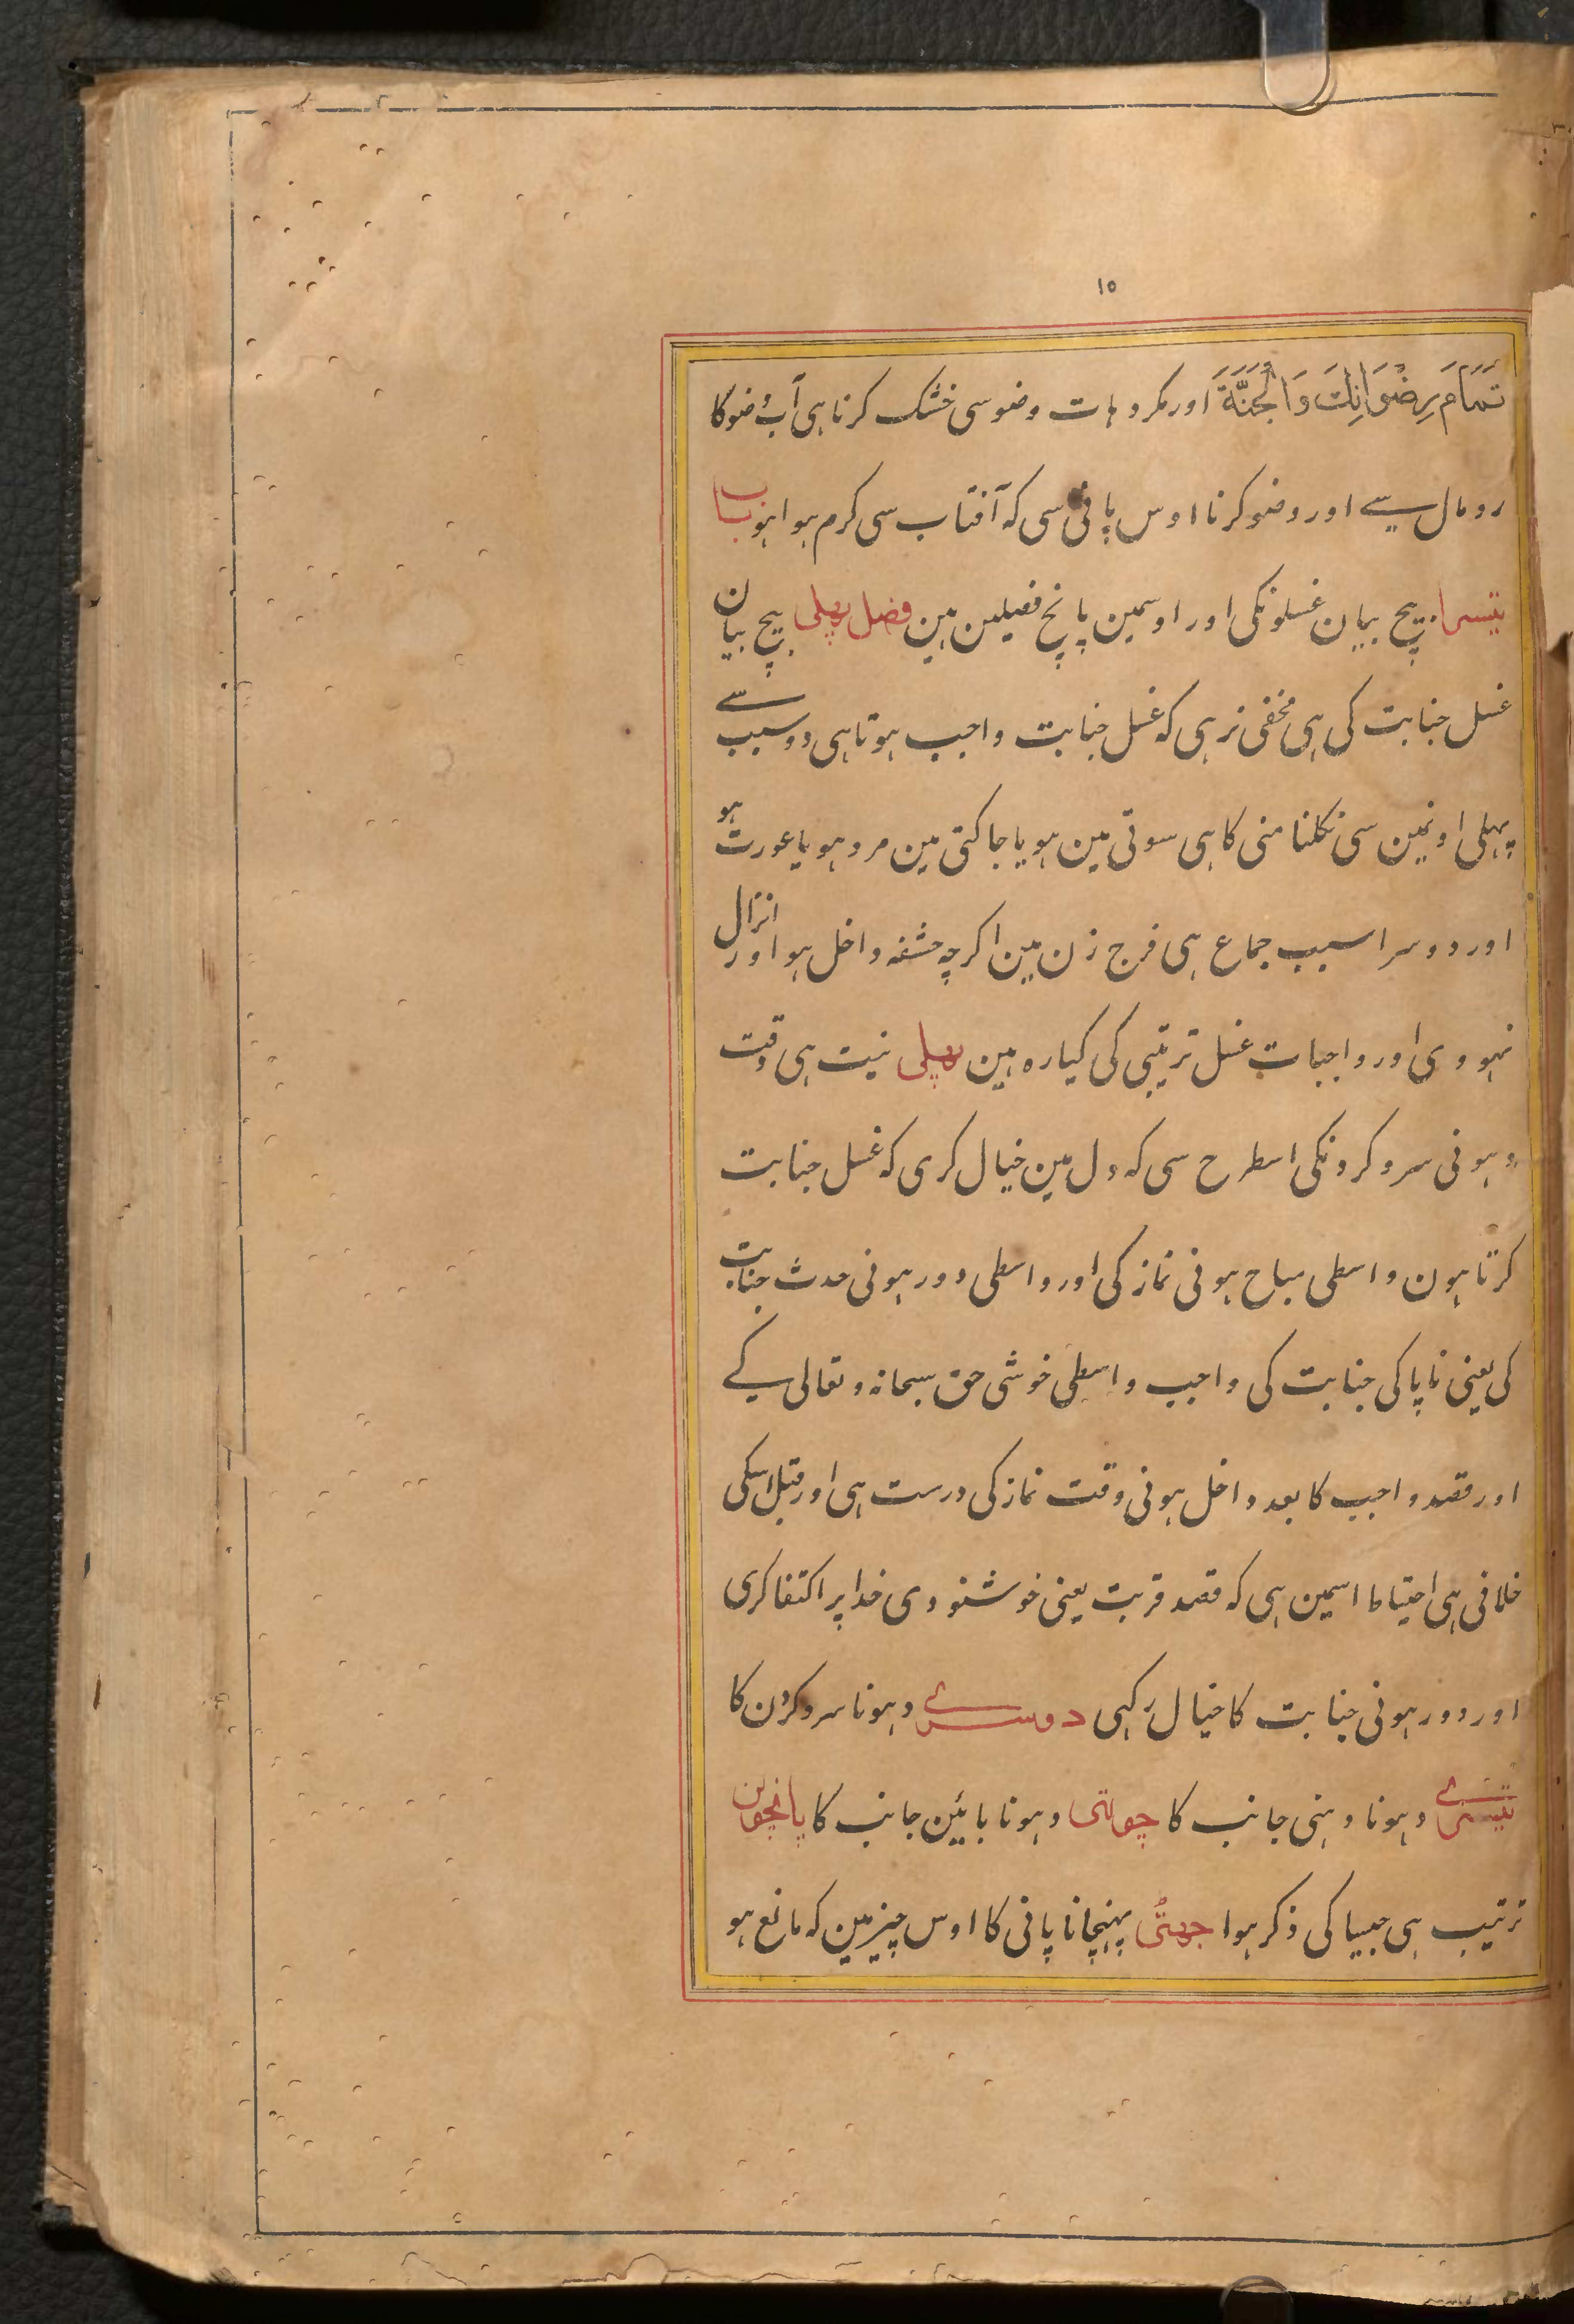 ۱۵
تَمَامَ رِضْوَانِكَ وَالْجَنَّةَ اور مکروہات وضو سی خشک کرنا ہی آب وضو کا
رومال سے اور وضو کرنا اوس پانی سی کہ آفتاب سی کرم ہوا ہو باب
تیسرا بیچ بیان غسلونکی اور اوسمین پانچ فصلین ہین فصل پہلی بیچ بیان
غسل جنابت کی ہی مخفی نرہی کہ غسل جنابت واجب ہوتا ہی دو سبب سے
پہلی اونمین سی نکلنا منی کا ہی سوتی مین ہو یا جاکتی مین مرد ہو یا عورت ہو
اور دوسرا سبب جماع ہی فرج زن مین اکرچہ حشفہ داخل ہو اور انزال
نہووی اور واجبات غسل ترتیبی کی کیارہ ہین پہلی نیت ہی وقت
دہونی سر و کردنکی اسطرح سی کہ دل مین خیال کری کہ غسل جنابت
کرتا ہون واسطی مباح ہونی نماز کی اور واسطی دور ہونی حدث جنابت
کی یعنی ناپاکی جنابت کی واجب واسطی خوشی حق سبحانہ و تعالی کے
اور قصد واجب کا بعد داخل ہونی وقت نماز کی درست ہی اور قبل اسکی
خلافی ہی احتیاط اسمین ہی کہ قصد قربت یعنی خوشنودی خدا پر اکتفا کری
اور دور ہونی جنابت کا خیال رکہی دوسرے دہونا سر و کردن کا
تیسرے دہونا دہنی جانب کا چوتہی دہونا بائین جانب کا پانچوین
ترتیب ہی جیسا کی ذکر ہوا چہٹی پہنچانا پانی کا اوس چیز مین کہ مانع ہو